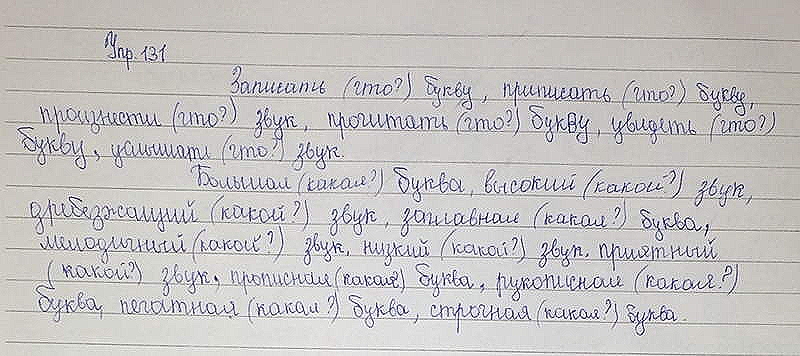 Упр. 131
Записать (что?) букву, приписать (что?) букву,
произнести (что?) звук, прочитать (что?) букву, увидеть (что?)
букву, услышать (что?) звук.
Большая (какая?) буква, высокий (какой?) звук,
дребезжащий (какой?) звук, заглавная (какая?) буква,
мелодичный (какой?) звук, низкий (какой?) звук, приятный
(какой?) звук, прописная (какая?) буква, рукописная (какая?)
буква, печатная (какая?) буква, строчная (какая?) буква.